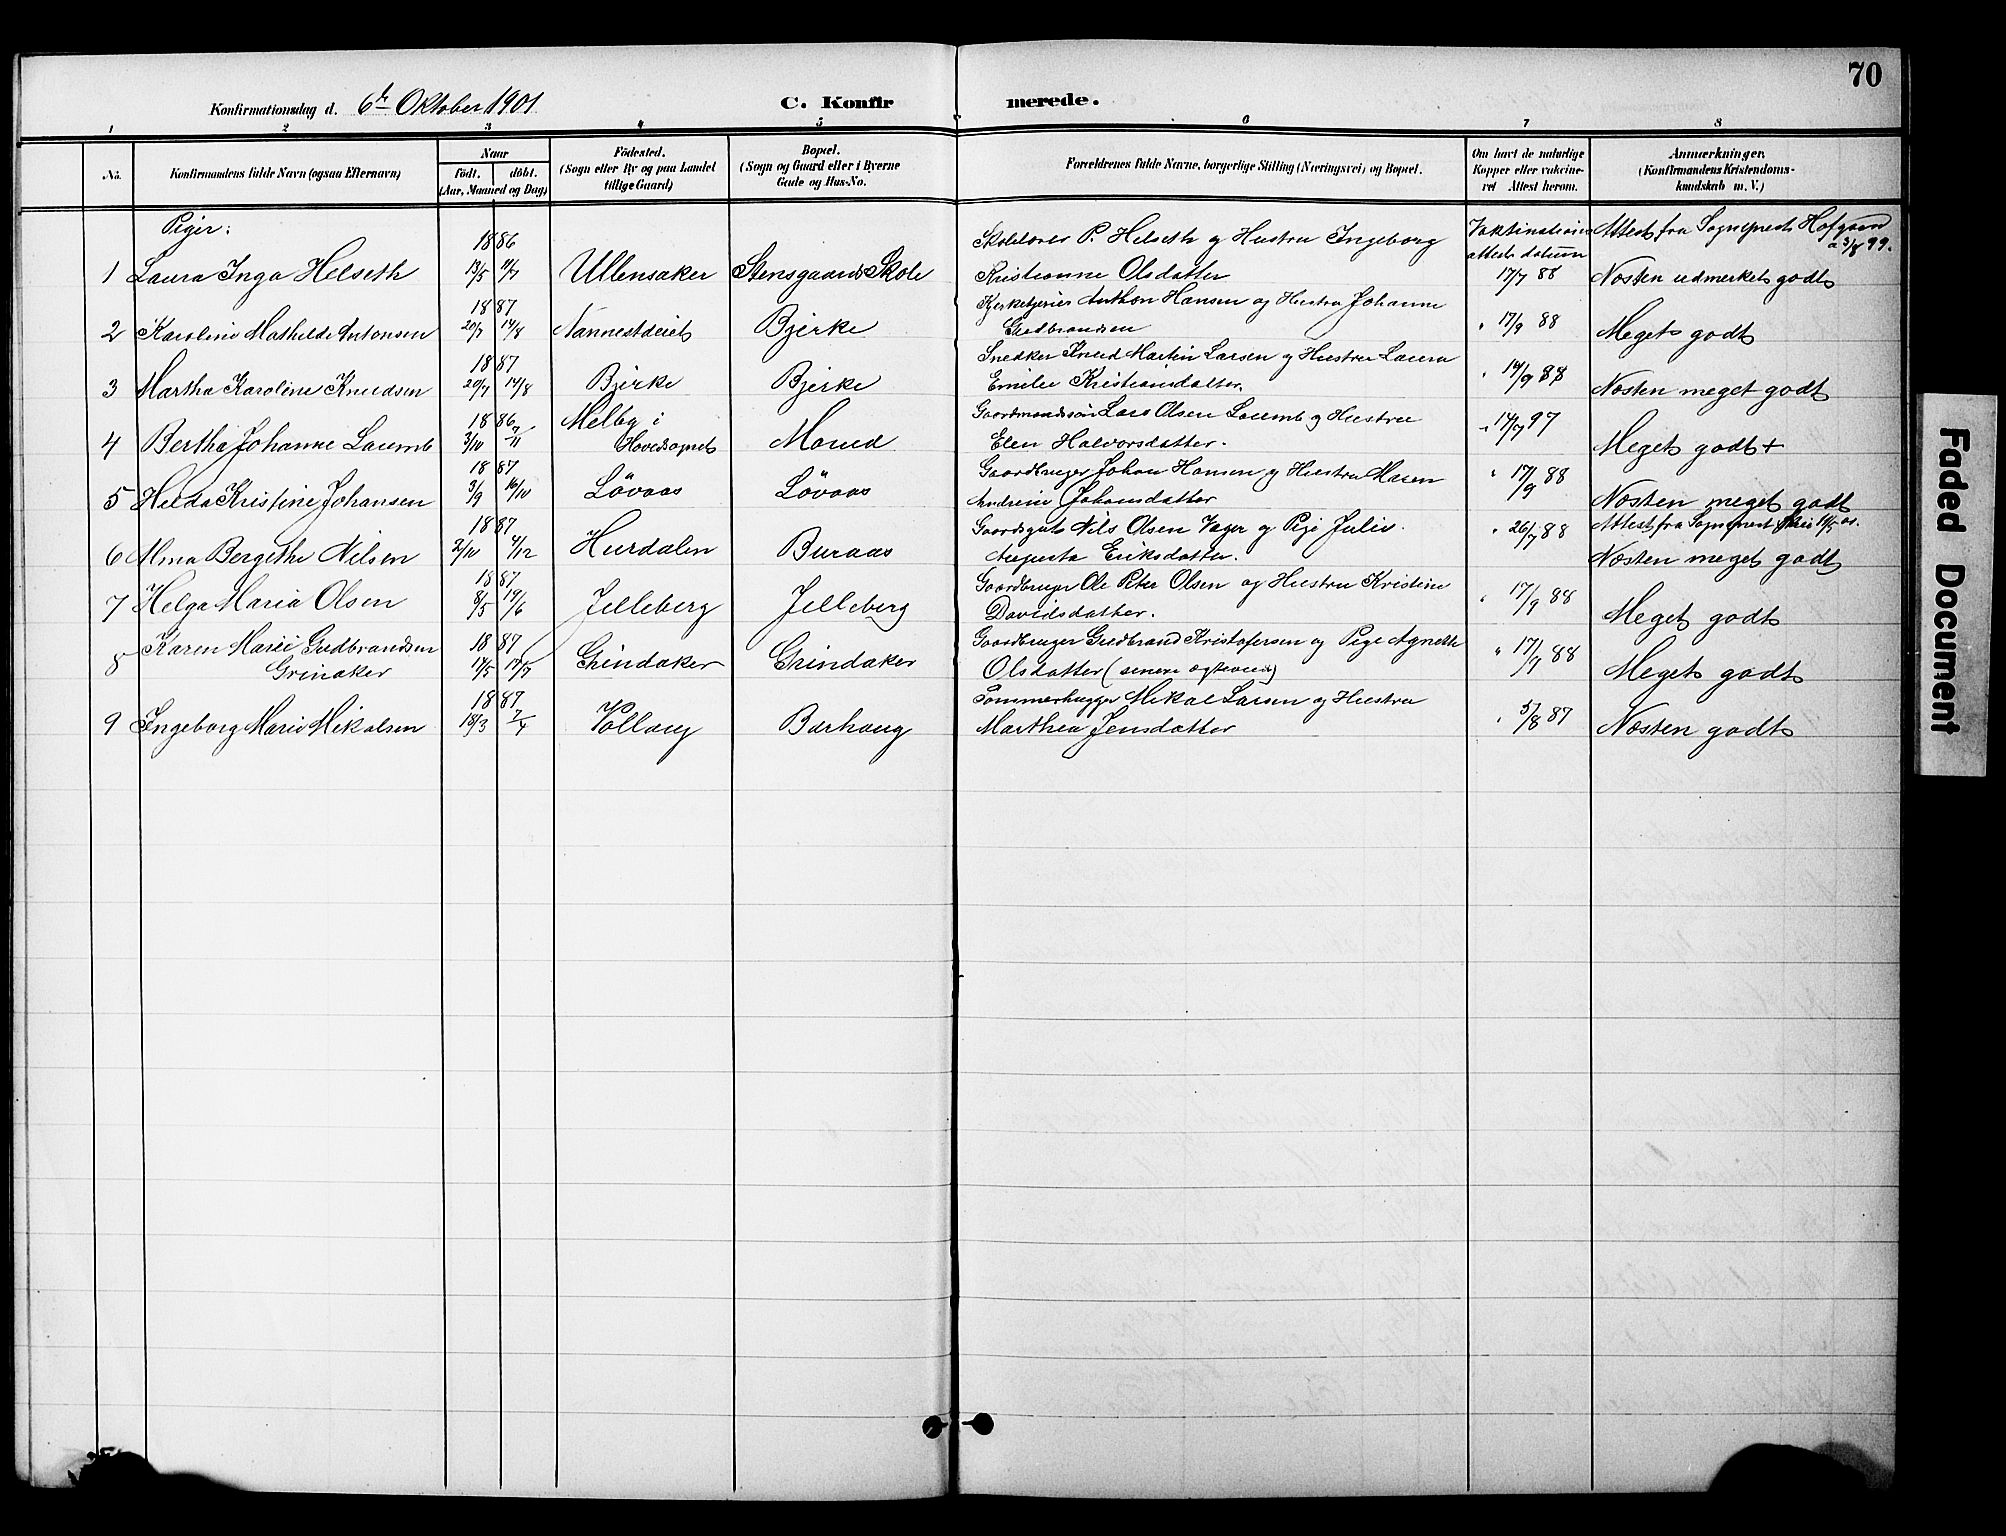 70
Konfirmationsdag d. 6te Oktober 1901
C. Konfirmerede.
1 2 3 4 5 6 7 8
No.
Konfirmandens fulde Navn (ogsaa Efternavn)
Naar
födt. döbt.
(Aar, Maaned og Dag)
Födested.
(Sogn eller By og paa Landet
tillige Gaard)
Bopæl.
(Sogn og Gaard eller i Byerne
Gade og Hus-No.
Forældrenes fulde Navne, borgerlige Stilling (Næringsvei) og Bopæl.
Om havt de naturlige
Kopper eller vakcine-
ret Attest herom.
Anmærkninger.
(Konfirmandens Kristendoms-
kundskab m. V.)
Piger:
1 Laura Inga Helseth 1886 13/5 4/7 Ullensaker Stensgaards Skole Skolelærer P. Helseth og Hustru Ingeborg
Kristianne Olsdatter Vaktinations
attests datum
17/7 88 Attest fra Sogneprest Hofgaard
a 3/8 99.
Næsten udmerket godt
2 Karoline Mathilde Antonsen 1887 20/7 14/8 Nannestdeiet Bjerke Kirketjener Anthon Hansen og Hustru Johanne
Gudbrandsen " 17/9 88 Meget godt
3 Martha Karoline Knudsen 1887 20/7 14/8 Bjerke Bjerke Snedker Knud Martin Larsen og Hustru Laura
Emilie Kristiansdatter. " 14/9 88 Næsten meget godt
4 Bertha Johanne Laumb 1886 3/10 7/11 Melby i
Hovedsognet Moud Gaardmandssøn Lars Olsen Laumb og Hustru
Elen Halvorsdatter. " 17/7 97 Meget godt +
5 Hilda Kristine Johansen 1887 3/9 16/10 Lövaas Lövaas Gaardbruger Johan Hansen og Hustru Maren
Andrine Johansdatter " 17/9 88 Næsten meget godt
6 Alma Bergithe Nilsen 1887 2/10 4/12 Hurdalen Buraas Gaardsgut Nils Olsen Vager og Pige Julie
Augusta Eriksdatter. " 26/7 88 Attest fra Sogneprest
Næsten meget godt
7 Helga Maria Olsen 1887 8/5 19/6 Jelleberg Jelleberg Gaardbruger Ole Peter Olsen og Hustru Kristine
Davidsdatter. " 17/9 88 Meget godt
8 Karen Marie Gudbrandsen
Grinaker 1887 17/5 17/7 Grindaker Grindaker Gaardbruger Gudbrand Kristofersen og Pige Agnethe
Olsdatter (senere ægteviede) " 17/9 88 Meget godt
9 Ingeborg Marie Mikalsen 1887 18/3 7/4 Vollaug Barhaug Tømmerhugger Mikal Larsen og Hustru
Marthea Jensdatter " 5/8 87 Næsten godt
Faded Document